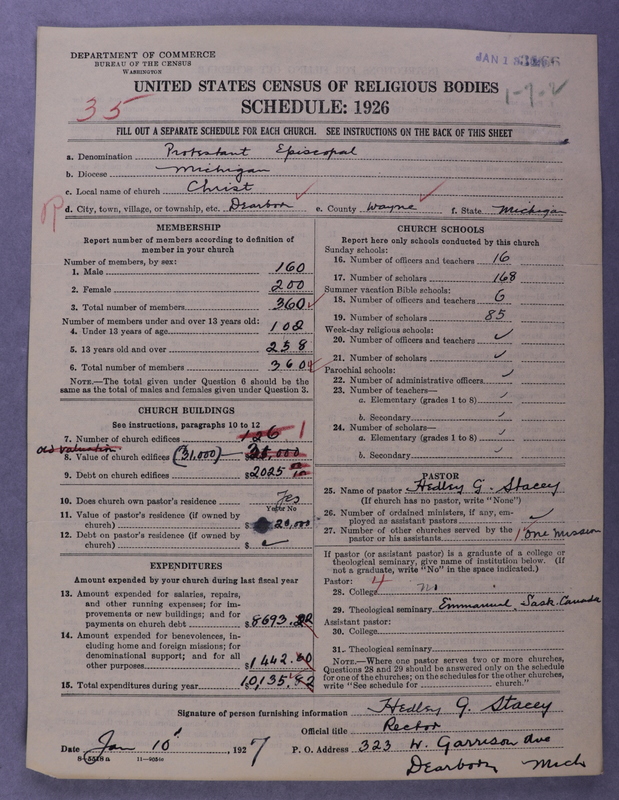 DEPARTMENT OF COMMERCE
BUREAU OF THE CENSUS
WASHINGTON
JAN 1
UNITED STATES CENSUS OF RELIGIOUS BODIES
SCHEDULE: 1926
35
FILL OUT A SEPARATE SCHEDULE FOR EACH CHURCH. SEE INSTRUCTIONS ON THE BACK OF THIS SHEET
a. Denomination Protestant Episcopal
b. Diocese Michigan
c. Local name of church Christ
d. City, town, village, or township, etc. Dearborn e. County Wayne f. State Michigan
MEMBERSHIP
Report number of members according to definition of member in your church
Number of members, by sex:
1. Male 160
2. Female 200
3. Total number of members 360
Number of members under and over 13 years old:
4. Under 13 years of age 102
5. 13 years old and over 258
6. Total number of members 360
NOTE.—The total given under Question 6 should be the
same as the total of males and females given under Question 3.
CHURCH BUILDINGS
See instructions, paragraphs 10 to 12
7. Number of church edifices 1
old valuation
8. Value of church edifices (31,000)
9. Debt on church edifices $2025
10. Does church own pastor's residence Yes
Yes or No
11. Value of pastor's residence (if owned by
church) $ 20,000
12. Debt on pastor's residence (if owned by
church) $
EXPENDITURES
Amount expended by your church during last fiscal year
13. Amount expended for salaries, repairs,
and other running expenses; for im-
provements or new buildings; and for
payments on church debt $8693.22
14. Amount expended for benevolences, in-
cluding home and foreign missions; for
denominational support; and for all
other purposes $1442.60
15. Total expenditures during year 10,135.82
CHURCH SCHOOLS
Report here only schools conducted by this church
Sunday schools:
16. Number of officers and teachers 16
17. Number of scholars 168
Summer vacation Bible schools:
18. Number of officers and teachers 6
19. Number of scholars 85
Week-day religious schools:
20. Number of officers and teachers
21. Number of scholars
Parochial schools:
22. Number of administrative officers
23. Number of teachers—
a. Elementary (grades 1 to 8)
b. Secondary
24. Number of scholars—
a. Elementary (grades 1 to 8)
b. Secondary
PASTOR
25. Name of pastor Hedley G. Stacey
(If church has no pastor, write "None")
26. Number of ordained ministers, if any, em-
ployed as assistant pastors
27. Number of other churches served by the
pastor or his assistants 1 one mission
If pastor (or assistant pastor) is a graduate of a college or
theological seminary, give name of institution below. (If
not a graduate, write "No" in the space indicated.)
Pastor: 4
28. College no
29. Theological seminary Emmanuel, Sask. Canada
Assistant pastor:
30. College
31. Theological seminary
NOTE.—Where one pastor serves two or more churches,
Questions 28 and 29 should be answered only on the schedule
for one of the churches; on the schedules for the other churches,
write "See schedule for church."
Signature of person furnishing information Hedley G. Stacey
Official title Rector
Date Jan 10, 1927 P. O. Address 323 W. Garrison Ave
8-5518a 11-9034c Dearborn Mich